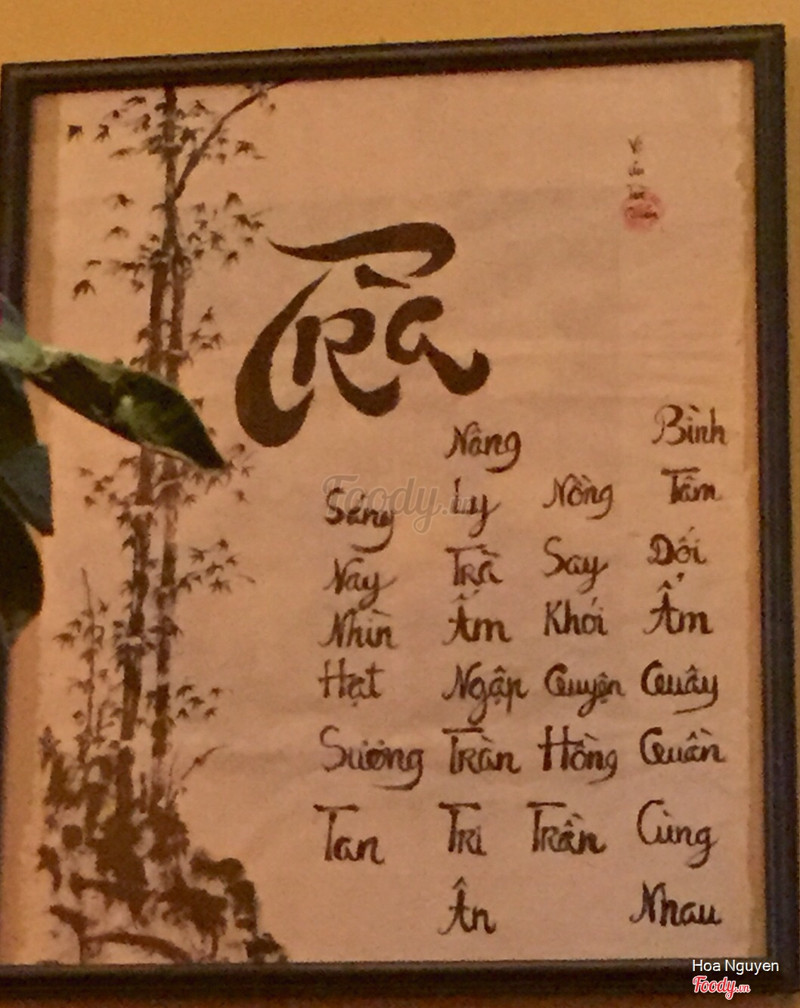 Trà
Sáng Nay Nhìn Hạt Sương Tan
Nâng Ly Trà Ấm Ngập Tràn Tri Ân
Nồng Say Khói Quyện Hồng Trần
Bình Tâm Đối Ẩm Quây Quần Cùng Nhau
Foody.vn
Hoa Nguyen
Foody.vn